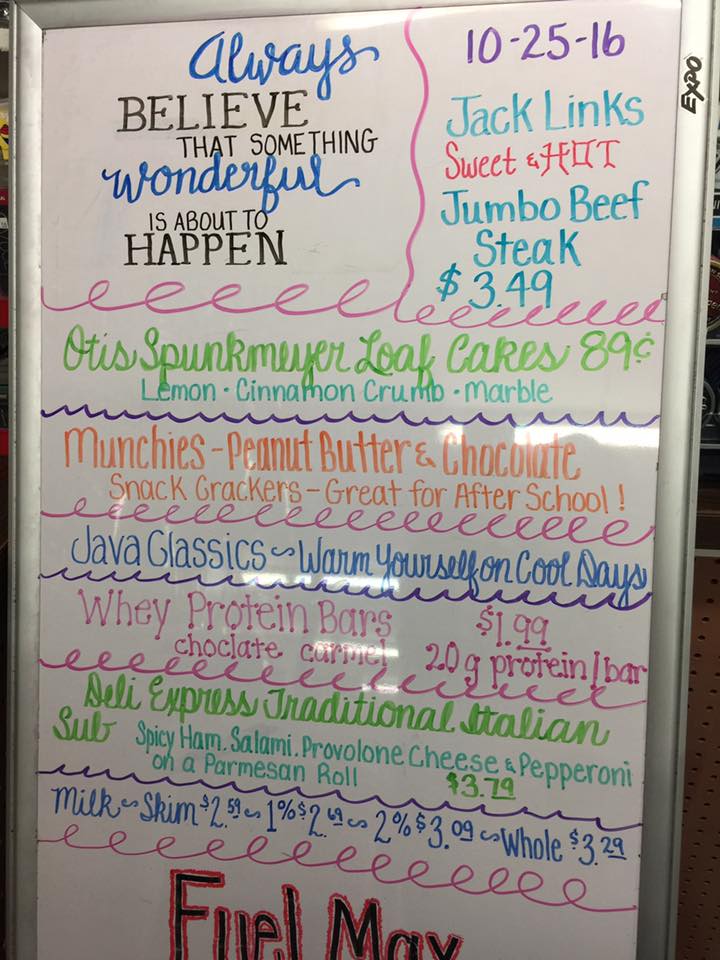 Always
BELIEVE
THAT SOMETHING
wonderful
IS ABOUT TO
HAPPEN
10-25-16
Jack Links
Sweet & HOT
Jumbo Beef
Steak
$3.49
EXPO
Otis Spunkmeyer Loaf Cakes 89¢
Lemon · Cinnamon Crumb · Marble
Munchies - Peanut Butter & Chocolate
Snack Crackers - Great for After School!
Java Classics ~ Warm Yourself on Cool Days
Whey Protein Bars $1.99
choclate carmel 20g protein/bar
Deli Express Traditional Italian
Sub Spicy Ham, Salami, Provolone Cheese & Pepperoni
on a Parmesan Roll $3.79
Milk ~ Skim $2.59 ~ 1% $2.69 ~ 2% $3.09 ~ Whole $3.29
Fuel Max